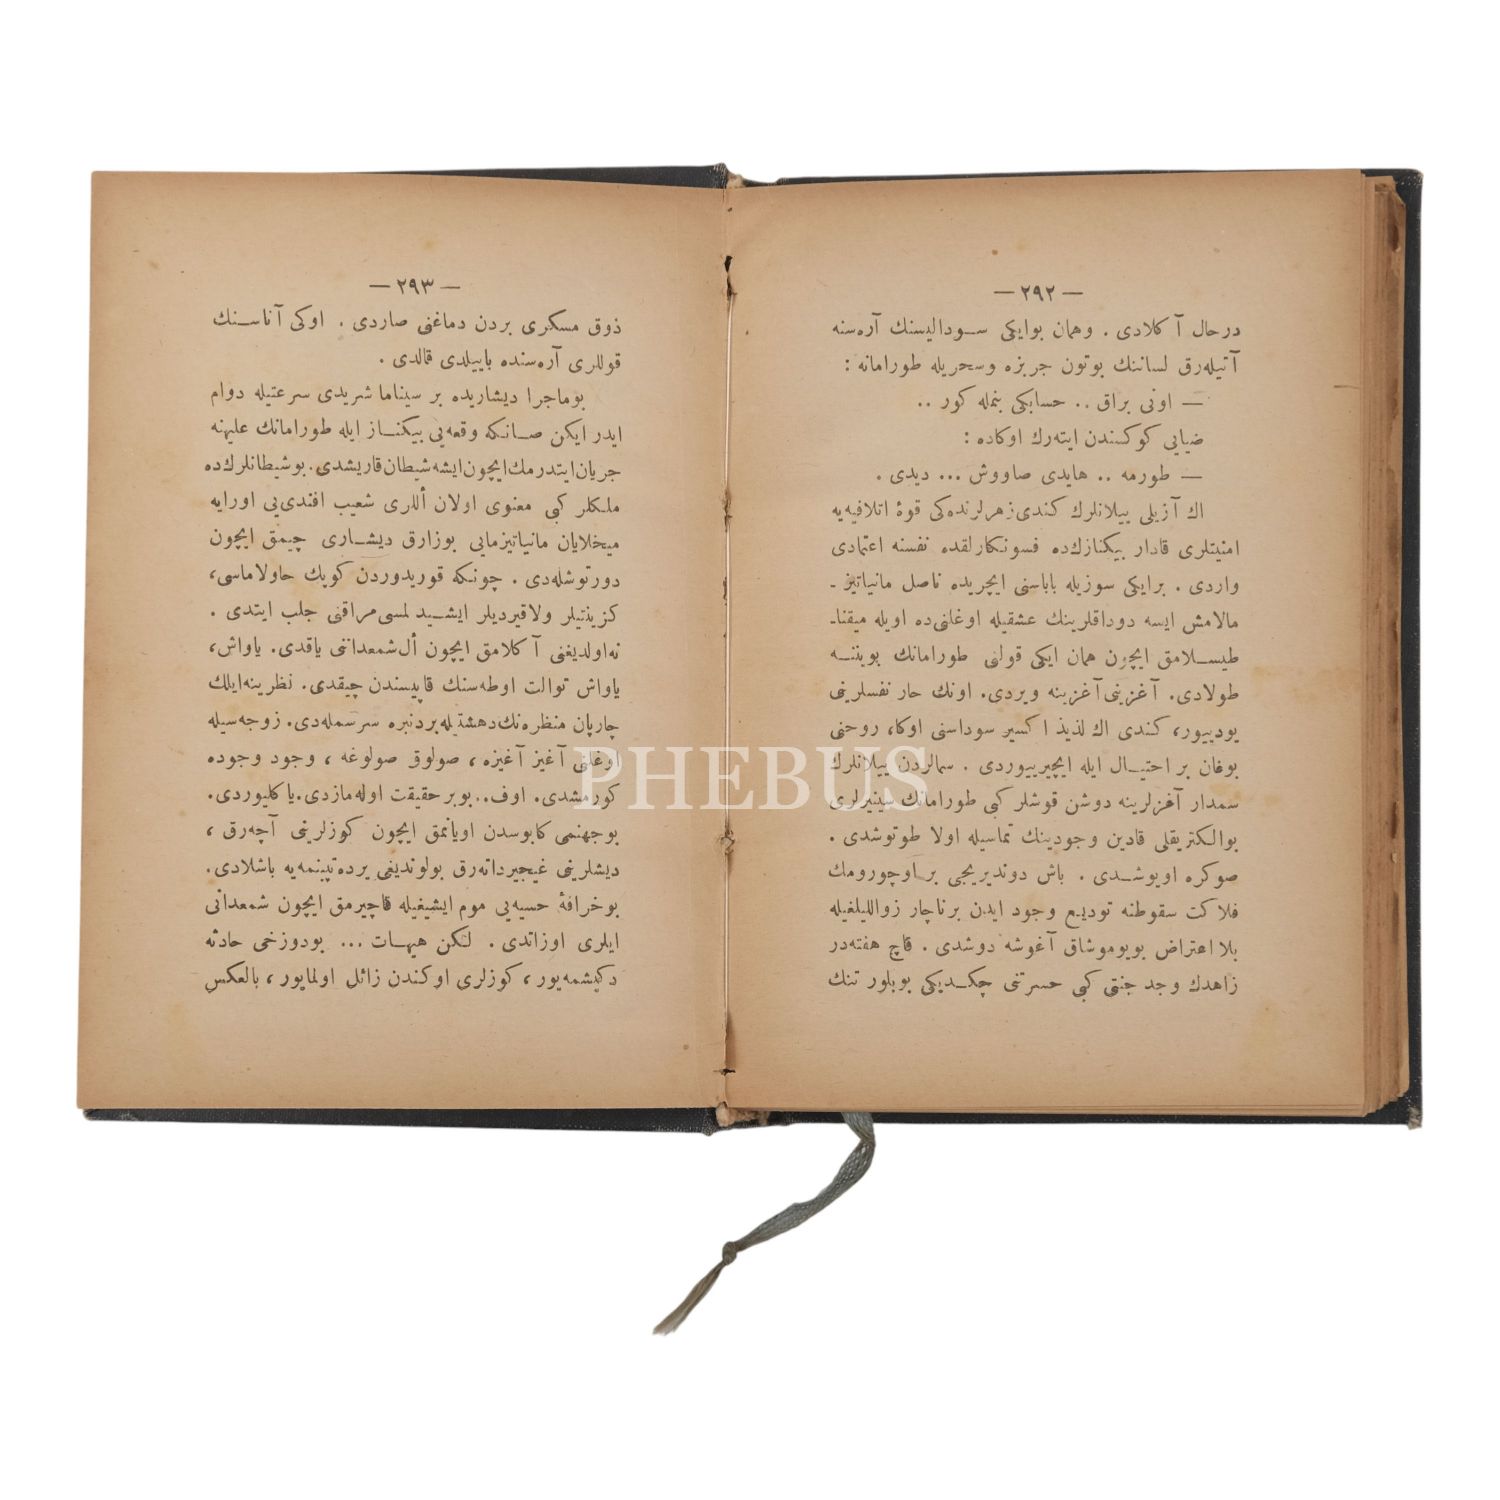 — ٢٩٢ —
درحال آ كلادی . وهمان بوایكی سودالیسنك آره‌سنه
آتیله‌رق لساننك بوتون جربزه وسحریله طورامانه :
— اونی براق .. حسابكی بنمله كور ..
ضیایی كوكسندن ایته‌رك اوكاده :
— طورمه .. هایدی صاووش ... دیدی .
اك آزیلی ییلانلرك كندی زهرلرنده‌كی قوهٔ اتلافیه‌یه
امنیتلری قادار بیكنازك‌ده فسونكارلقده نفسنه اعتمادی
واردی . برایكی سوزیله باباسنی ایچریده ناصل مانیاتیز ـ
مالامش ایسه دوداقلرینك عشقیله اوغلنی‌ده اویله میقنا ـ
طیسلامق ایچون همان ایكی قولنی طورامانك بویننه
طولادی. آغزینی آغزینه ویردی. اونك حار نفسلرینی
یودییور، كندی اك لذیذ اكسیر سوداسنی اوكا، روحنی
بوغان بر احتیال ایله ایچیرییوردی . سمالردن ییلانلرك
سمدار آغزلرینه دوشن قوشلر كبی طورامانك سینیرلری
بوالكتریقلی قادین وجودینك تماسیله اولا طوتوشدی .
صوكره اویوشدی . باش دوندیریجی بر اوچورومك
فلاكت سقوطنه تودیع وجود ایدن برناچار زواللیلغیله
بلا اعتراض بویوموشاق آغوشه دوشدی . قاچ هفته‌در
زاهدك وجد جنتی كبی حسرتنی چكدیكی بوبلور تنك
— ٢٩٣ —
ذوق مسكری بردن دماغنی صاردی . اوكی آناسنك
قوللری آره‌سنده باییلدی قالدی .
بوماجرا دیشاریده بر سینما شریدی سرعتیله دوام
ایدر ایكن صانكه وقعه‌یی بیكناز ایله طورامانك علیهنه
جریان ایتدرمك ایچون ایشه شیطان قاریشدی. بوشیطانلرك‌ده
ملكلر كبی معنوی اولان أللری شعیب افندی‌یی اورایه
میخلایان مانیاتیزمایی بوزارق دیشاری چیمق ایچون
دورتوشله‌دی . چونكه قوریدوردن كوپك حاولاماسی،
كزینتیلر ولاقیردیلر ایشیدلمسی مراقنی جلب ایتدی .
نه‌اولدیغنی آ كلامق ایچون أل شمعداننی یاقدی. یاواش،
یاواش توالت اوطه‌سنك قاپیسندن چیقدی. نظرینه‌ایلك
چارپان منظره‌نك‌دهشتیله‌بردنبره سرسمله‌دی. زوجه‌سیله
اوغلنی آغیز آغیزه ، صولوق صولوغه ، وجود وجوده
كورمشدی. اوف.. بوبر حقیقت اوله‌مازدی. یا كلیوردی.
بوجهنمی كابوسدن اویانمق ایچون كوزلرینی آچه‌رق ،
دیشلرینی غیجیرداته‌رق بولوندیغی یرده تپینمه‌یه باشلادی.
بوخرافهٔ حسیه‌یی موم ایشیغیله قاچیرمق ایچون شمعدانی
ایلری اوزاتدی . لكن هیهات ... بودوزخی حادثه
دكیشمه‌یور ، كوزلری اوكندن زائل اولمایور ، بالعكس
PHEBUS